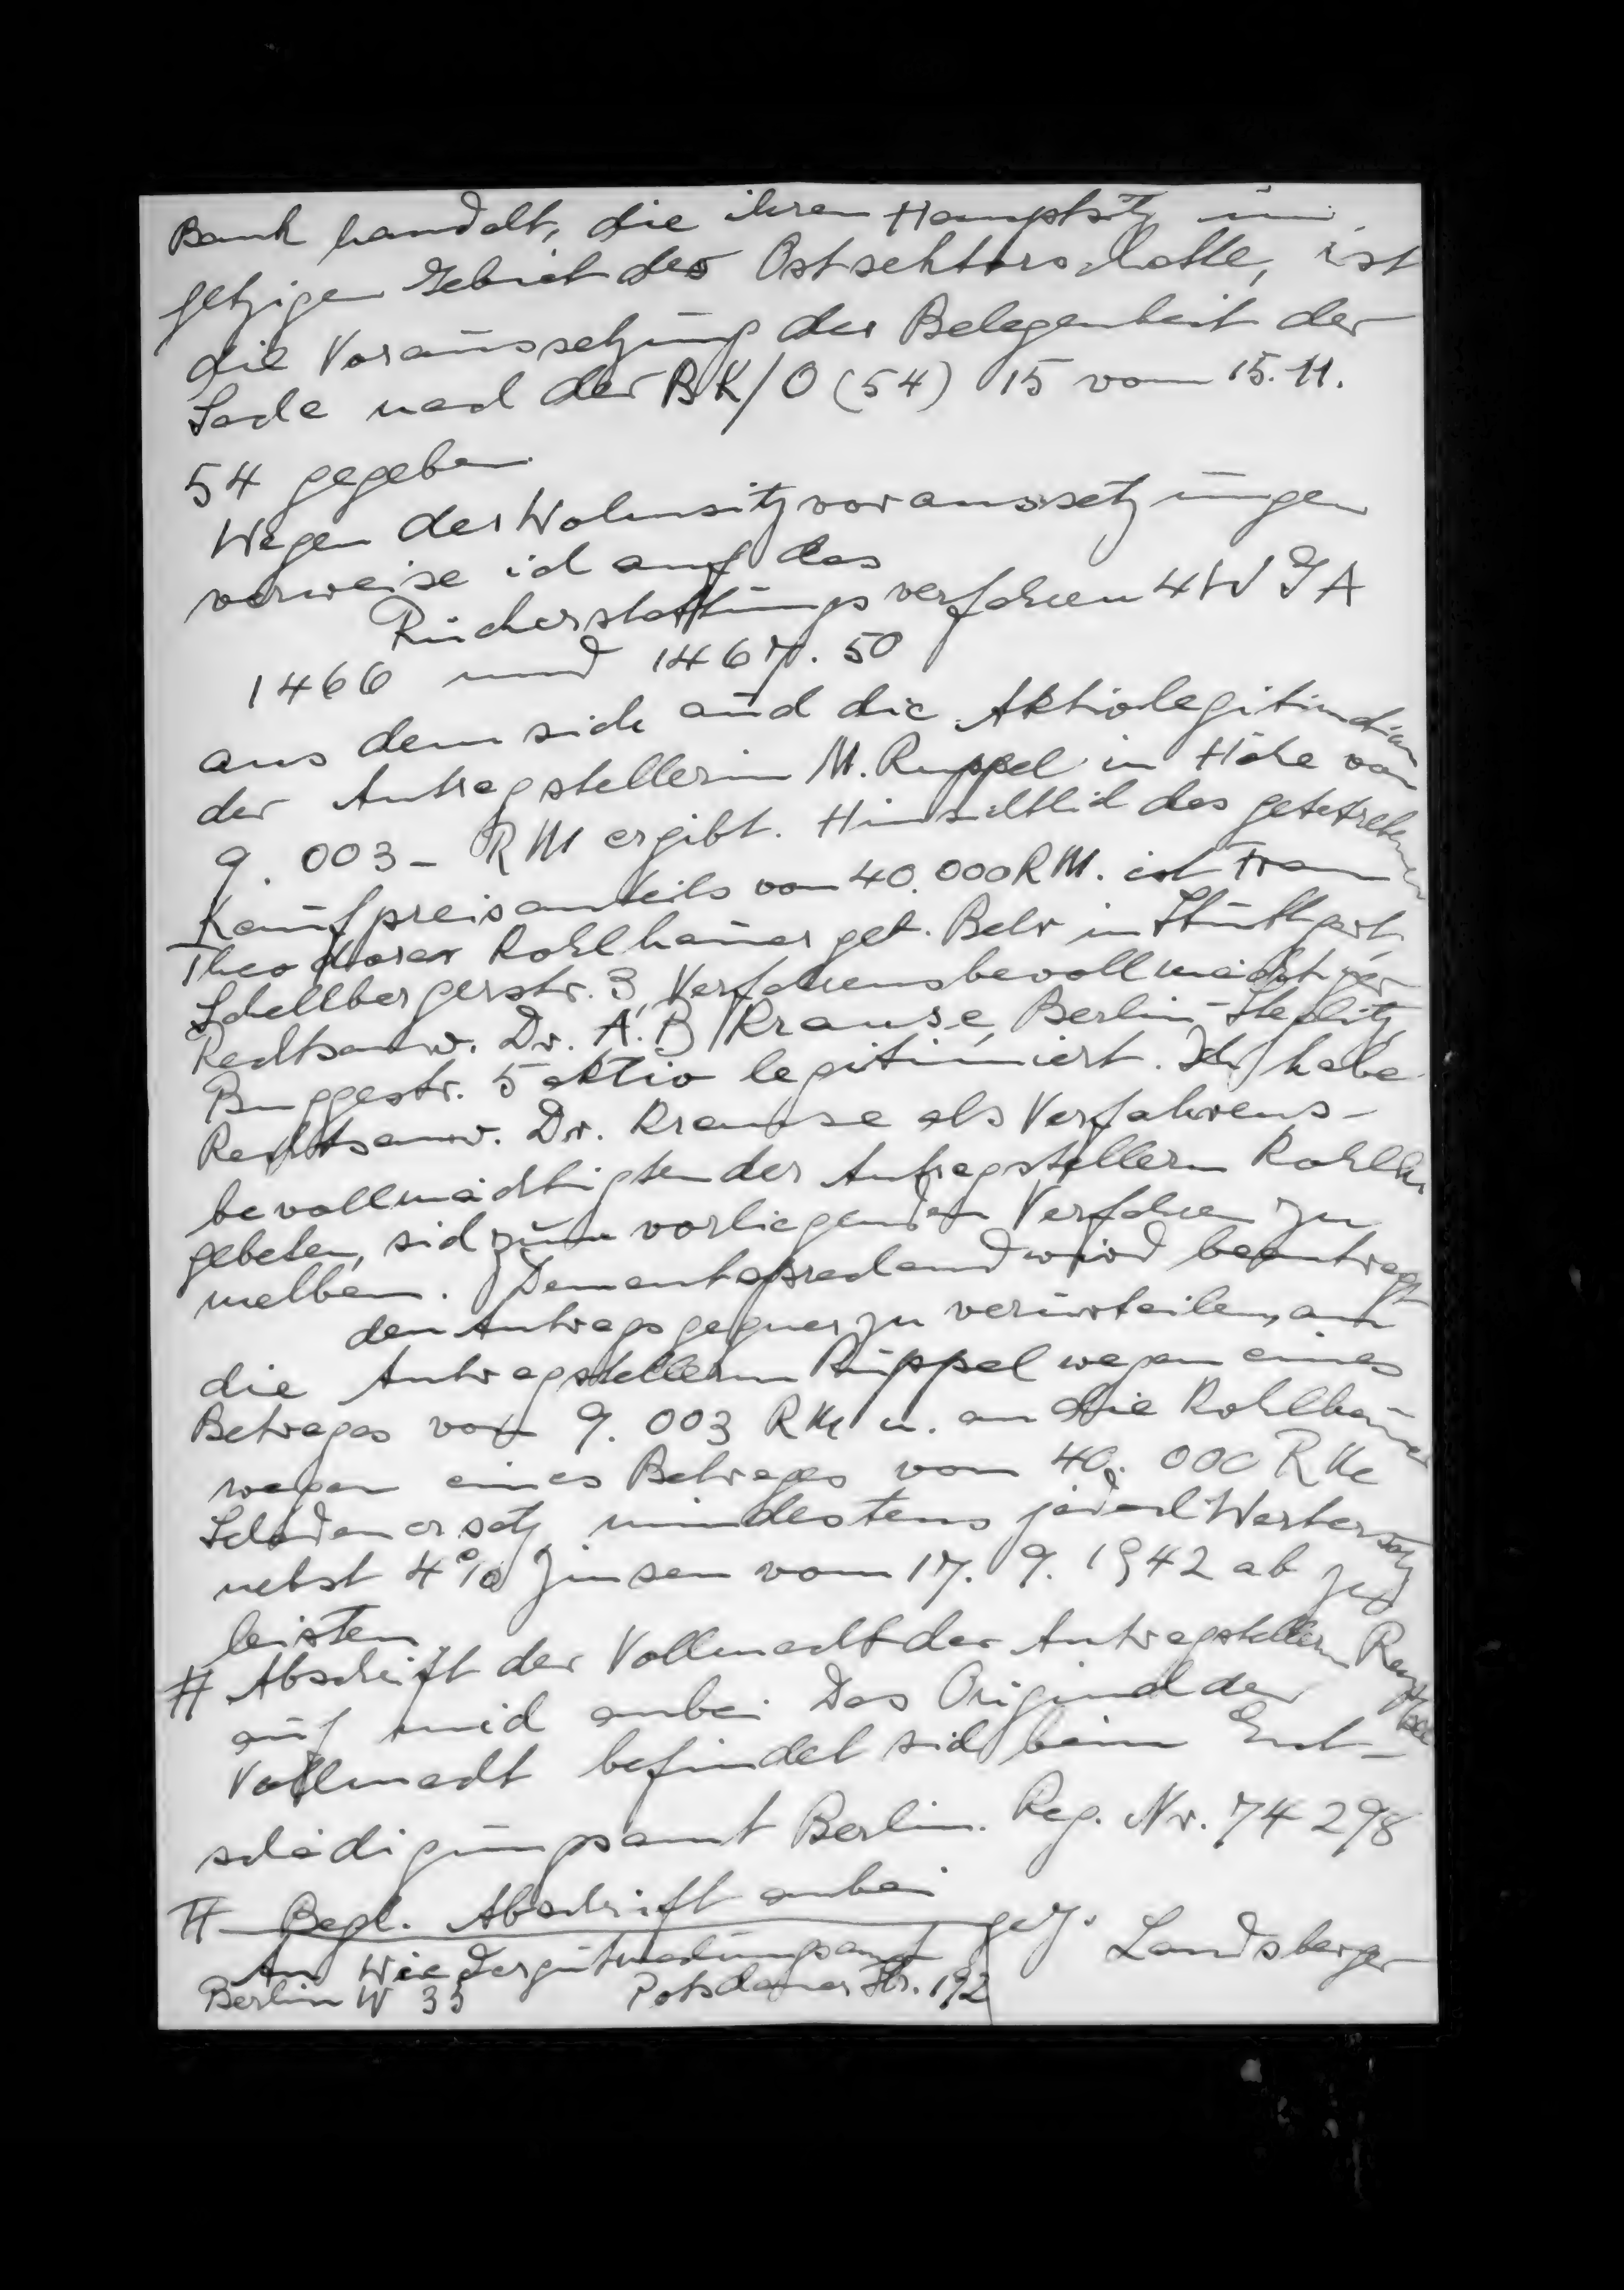 Bank handelt, die ihren Hauptsitz im
jetzigen Gebiet des Ostsektors hatte, ist
die Voraussetzung der Belegenheit der
Sache nach der BK/O (54) 15 vom 15.11.
54 gegeben.
Wegen der Wohnsitzvoraussetzungen
verweise ich auf das
Rückerstattungsverfahren 4 WGA
1466 und 1467. 50
aus dem sich auch die Aktivlegitimation
der Antragstellerin M. Ruppel in Höhe von
9.003- RM ergibt. Hinsichtlich des
Kaufpreisanteils von 40.000 RM. ist Frau
Theodora Kohlhauer geb. in Stuttgart,
Schellbergerstr. 3, Verfahrensbevollmächtigter
Rechtsanw. Dr. A. B. Krause, Berlin-Steglitz,
Buggestr. 5 aktiv legitimiert. Ich habe
Rechtsanw. Dr. Krause als Verfahrens-
bevollmächtigten der Antragstellerin
gebeten, sich zum vorliegenden Verfahren zu
melden. Dementsprechend wird beantragt
den Antragsgegner zu verurteilen, an
die Antragstellerin Ruppel wegen eines
Betrages von 9.003 RM u. an die Kohlhauer
wegen eines Betrages von 40.000 RM
Schadenersatz mindestens jedoch Wertersatz
nebst 4% Zinsen vom 17.9.1942 ab zu
leisten.
# Abschrift der Vollmacht der Antragstellerin Ruppel
auf mich anbei. Das Original der
Vollmacht befindet sich beim Ent-
schädigungsamt Berlin. Reg. Nr. 74 298
# Begl. Abschrift anbei
gez. Landsberger
An Wiedergutmachungsamt
Berlin W 35 Potsdamer Str. 192